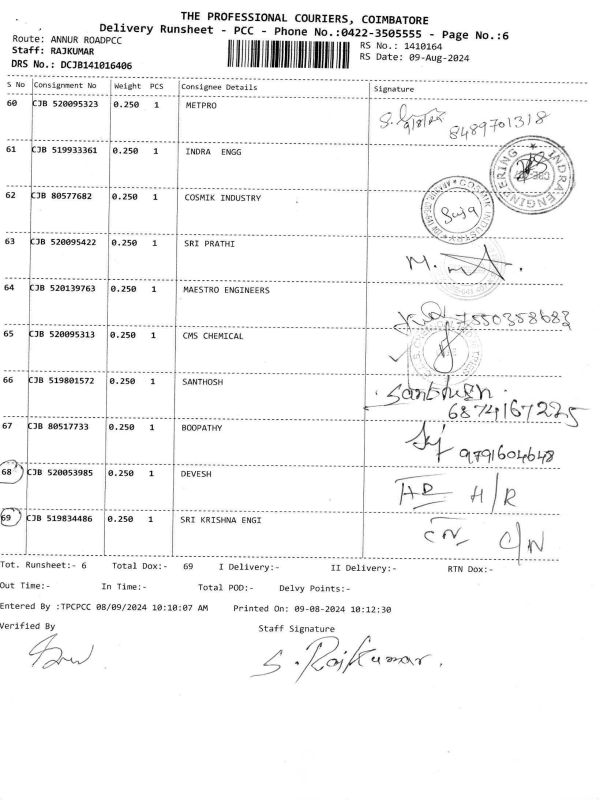 THE PROFESSIONAL COURIERS, COIMBATORE
Delivery Runsheet - PCC - Phone No.:0422-3505555 - Page No.:6
Route: ANNUR ROADPCC
RS No.: 1410164
Staff: RAJKUMAR
RS Date: 09-Aug-2024
DRS No.: DCJB141016406
S No Consignment No Weight PCS Consignee Details Signature
60 CJB 520095323 0.250 1 METPRO
8489701318
61 CJB 519933361 0.250 1 INDRA ENGG
INDRA ENGINEERING
62 CJB 80577682 0.250 1 COSMIK INDUSTRY
COSMIK INDUSTRY
63 CJB 520095422 0.250 1 SRI PRATHI
64 CJB 520139763 0.250 1 MAESTRO ENGINEERS
7550358683
65 CJB 520095313 0.250 1 CMS CHEMICAL
66 CJB 519801572 0.250 1 SANTHOSH
Santhosh.
6874167225
67 CJB 80517733 0.250 1 BOOPATHY
9791604648
68 CJB 520053985 0.250 1 DEVESH
H/R
69 CJB 519834486 0.250 1 SRI KRISHNA ENGI
C/N
Tot. Runsheet:- 6 Total Dox:- 69 I Delivery:- II Delivery:- RTN Dox:-
Out Time:- In Time:- Total POD:- Delvy Points:-
Entered By :TPCPCC 08/09/2024 10:10:07 AM Printed On: 09-08-2024 10:12:30
Verified By Staff Signature
S. Rajkumar.